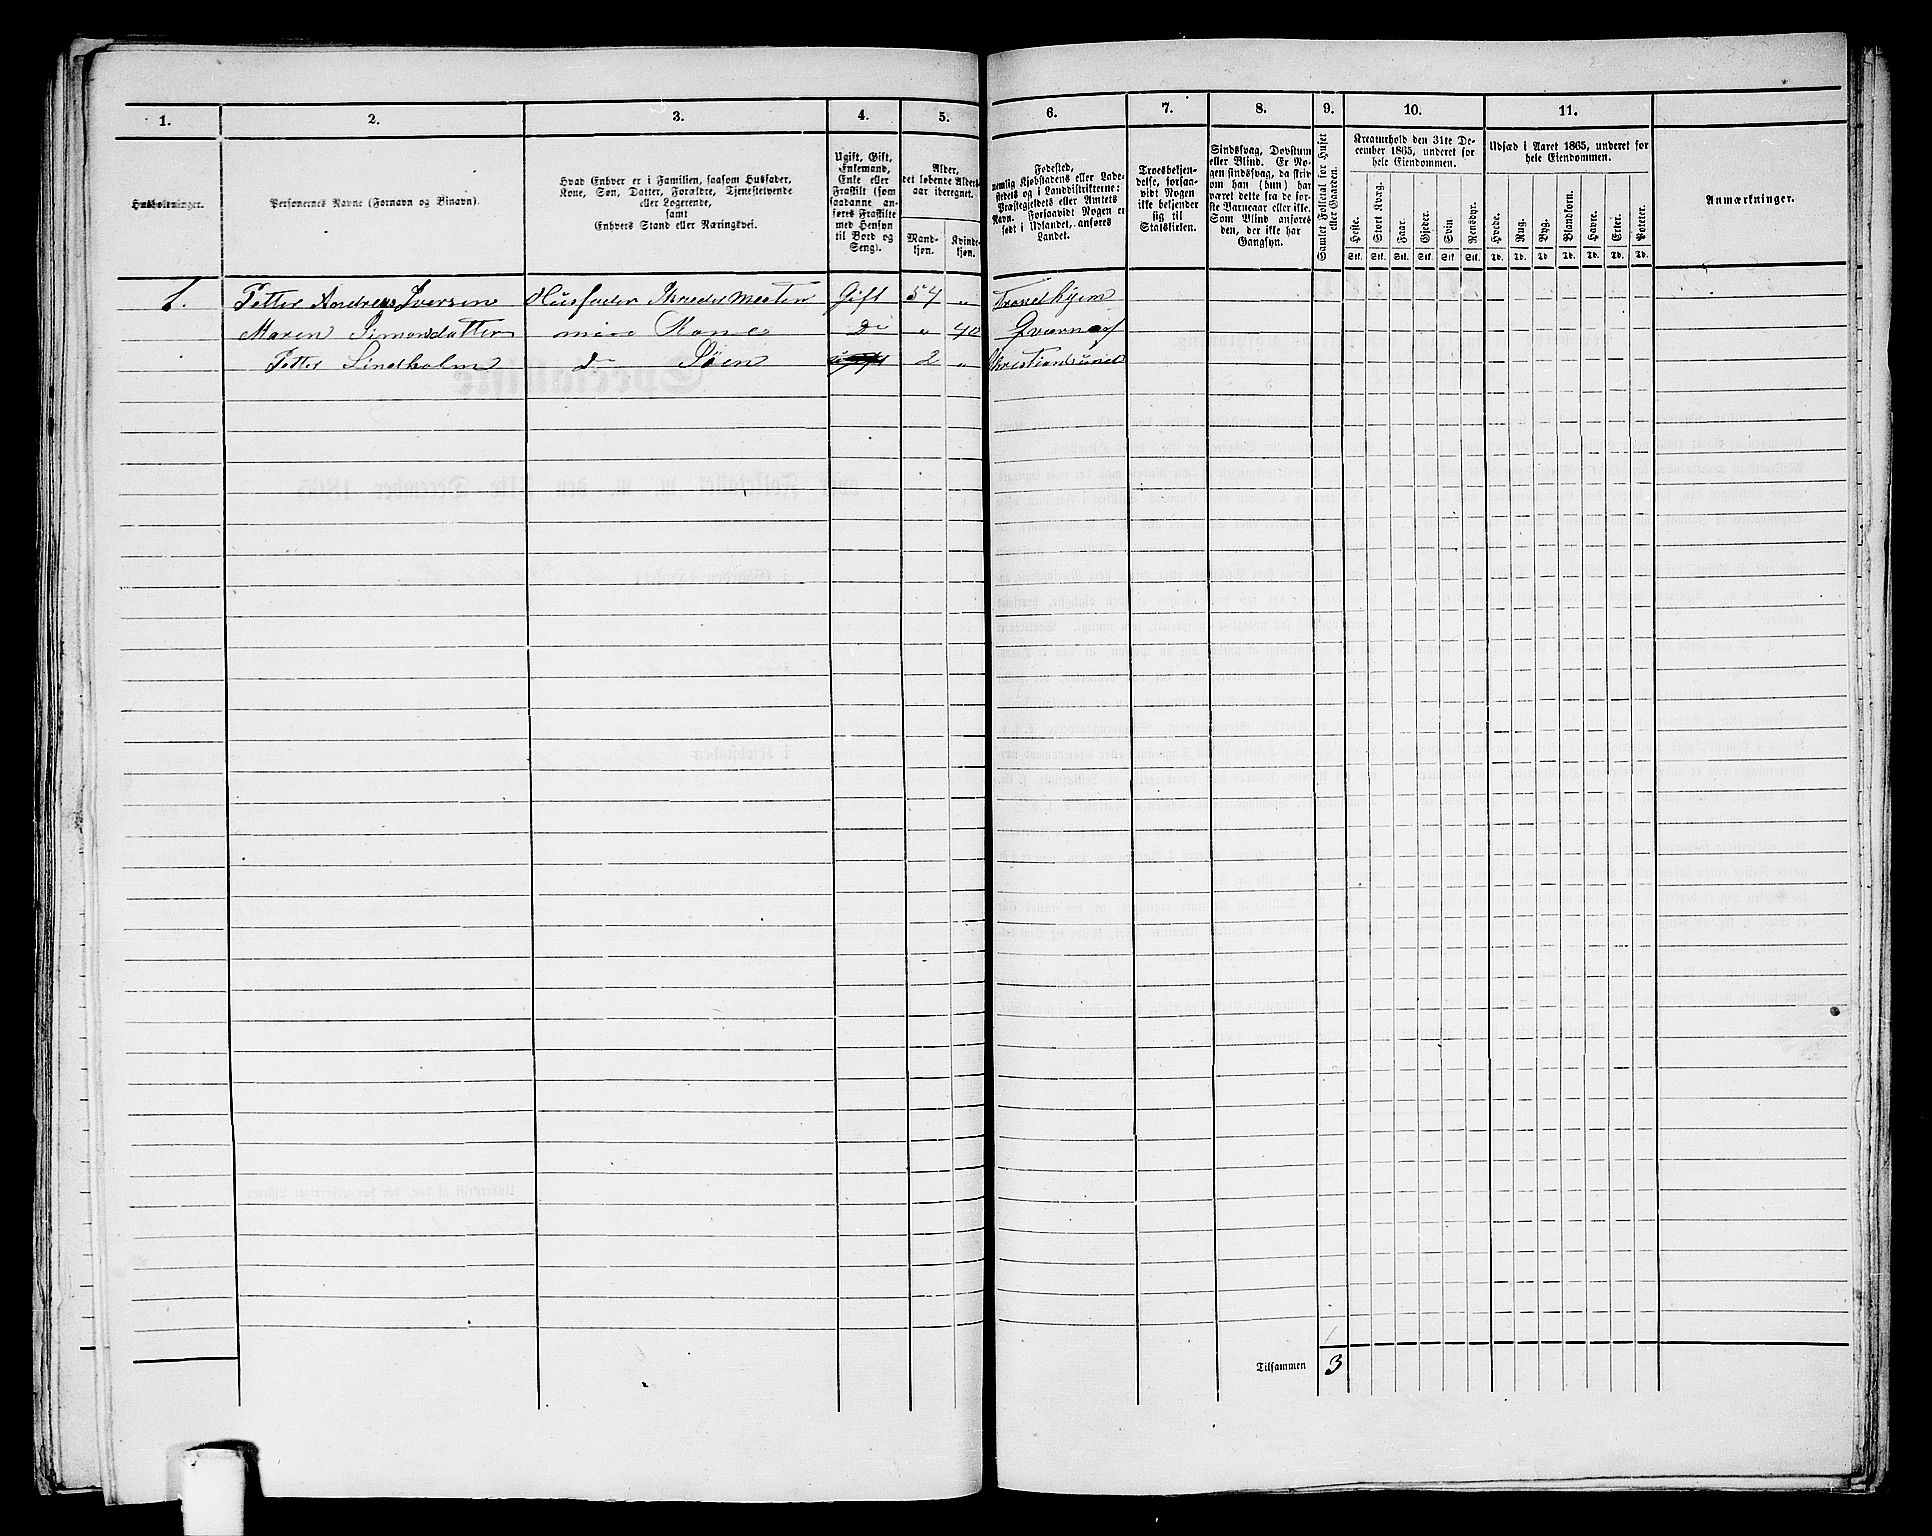 1. 2. 3. 4. 5. 6. 7. 8. 9. 10. 11.
Husholdninger.
Personernes Navne (Fornavn og Binavn).
Hvad Enhver er i Familien, saasom Husfader,
Kone, Søn, Datter, Forældre, Tjenestetyende
eller Logerende,
samt
Enhvers Stand eller Næringsvei.
Ugift, Gift,
Enkemand,
Enke eller
Fraskilt (som
saadanne an-
føres Fraskilte
med Hensyn
til Bord og
Seng).
Alder,
det løbende Alders-
aar iberegnet.
Mand-
kjøn.
Kvinde-
kjøn.
Fødested,
nemlig Kjøbstadens eller Lade-
stedets og i Landdistrikterne:
Præstegjeldets eller Amtets
Navn. Forsaavidt Nogen er
født i Udlandet, anføres
Landet.
Troesbekjen-
delse, forsaa-
vidt Nogen
ikke bekjender
sig til
Statskirken.
Sindssvag, Døvstum
eller Blind. Er No-
gen sindssvag, da skriv
om han (hun) har
været dette fra de før-
ste Barneaar eller ikke.
Som Blind anføres
den, der ikke har
Gangsyn.
Samlet Folketal for Huset
eller Gaarden.
Kreaturhold den 31te De-
cember 1865, underet for
hele Eiendommen.
Heste. Stort Kvæg. Faar. Gjeder. Svin Rensdyr.
Stk. Stk. Stk. Stk. Stk. Stk.
Udsæd i Aaret 1865, underet for
hele Eiendommen.
Hvede. Rug. Byg. Blandkorn. Havre. Erter. Poteter.
Td. Td. Td Td. Td. Td. Td.
Anmærkninger.
1. Petter Andreas Iversen Husfader Skredermester Gift 54 „ Trondhjem
Maren Simonsdatter Kone Do „ 40
Petter Lindholm d Søen 2 „ Christiansund
Tilsammen 3